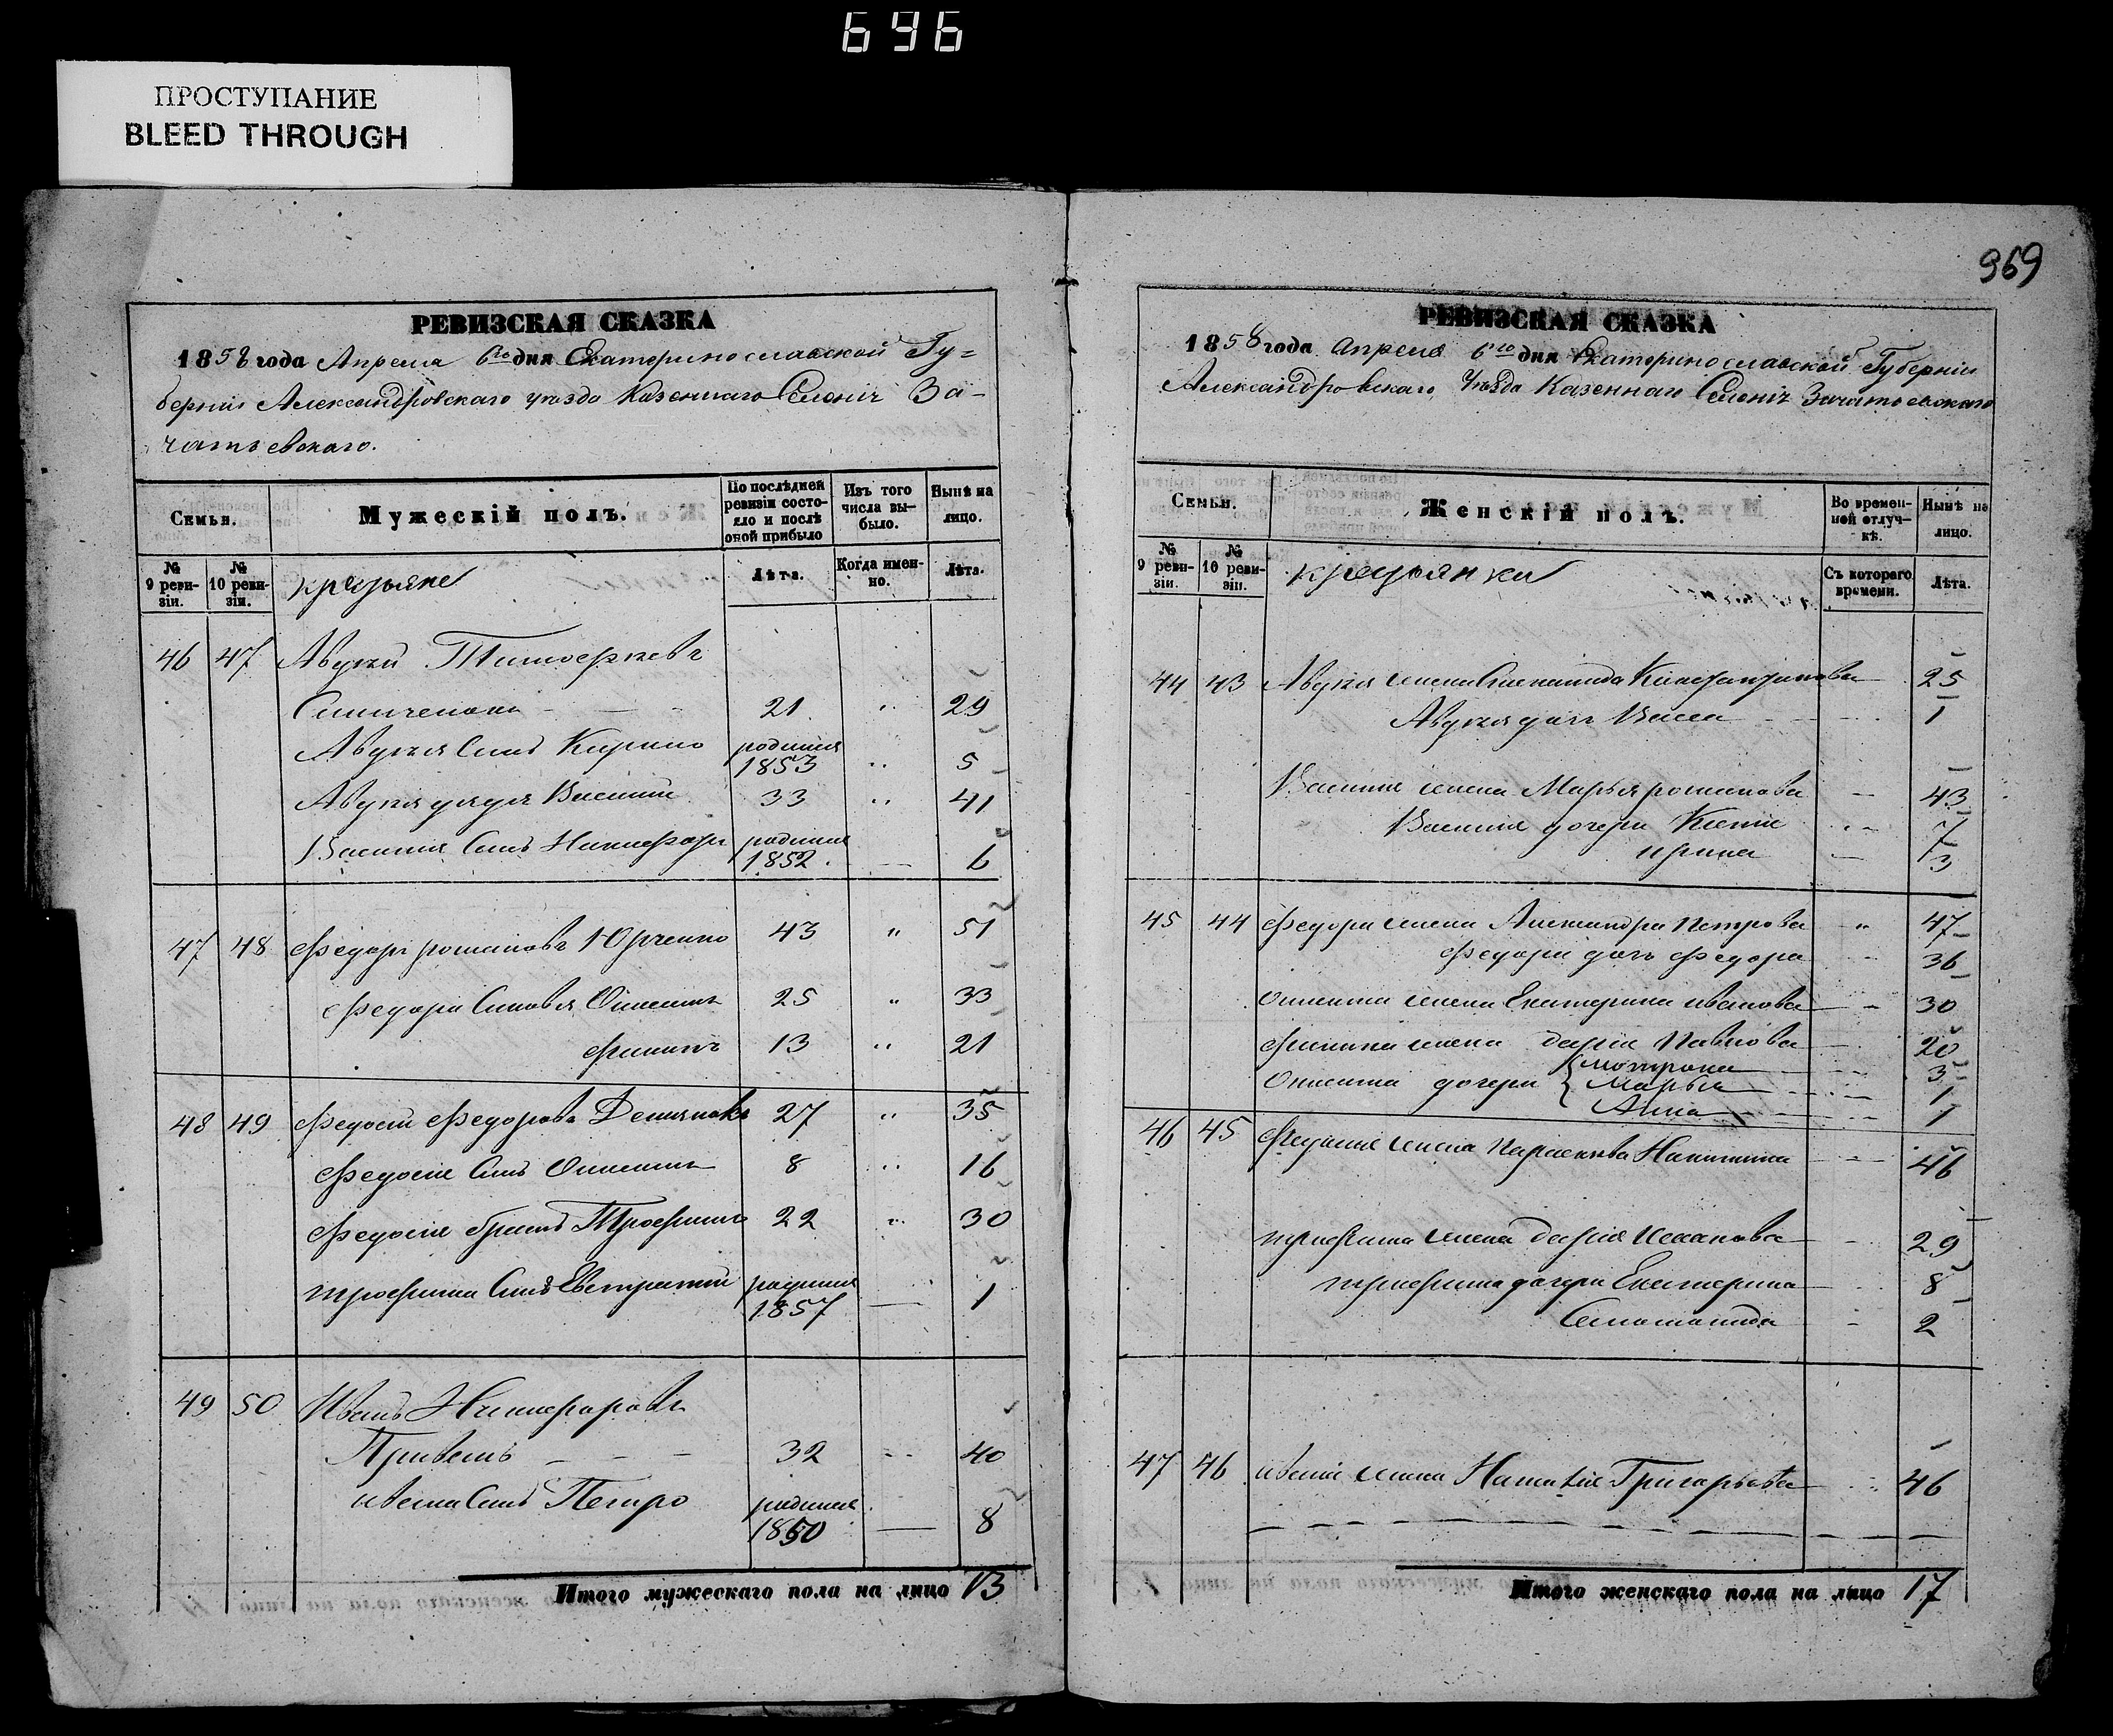 696
ПРОСТУПАНИЕ
BLEED THROUGH
РЕВИЗСКАЯ СКАЗКА
1858 года Апреля 6го дня Екатеринославской Гу=
берніи Александровскаго уезда Казеннаго Селенія За-
чатьевскаго.
Семьи.
Мужескій полъ.
По послѣдней ревизіи состояло и послѣ оной прибыло
Изъ того числа выбыло.
Нынѣ на лицо.
№ 9 ревизіи.
№ 10 ревизіи.
крестьяне
Лѣта.
Когда именно.
Лѣта.
46 47 Авдей Тимофеевъ
21 " 29
сынъ Кирило родился 1853 " 5
дядя Василий 33 " 41
Василия сынъ Никифоръ родился 1852 — 6
47 48 Федоръ романовъ Юрченко 43 " 51
Федора сыновья Онисимъ 25 " 33
филипъ 13 " 21
48 49 Федосій Федоровъ 27 " 35
Федосія сынъ Онисимъ 8 " 16
Федосія братъ Трофимъ 22 " 30
трофима сынъ Евстратий родился 1857 — 1
49 50 Иванъ Никифоровъ
32 " 40
ивана сынъ Петро родился 1850 — 8
Итого мужескаго пола на лицо 13
969
РЕВИЗСКАЯ СКАЗКА
1858 года апреля 6го дня Екатеринославской Губерніи
Александровскаго Уѣзда Казеннаго Селенія Зачатьевскаго
Семьи.
Женскій полъ.
Во временной отлучкѣ.
Нынѣ на лицо.
№ 9 ревизіи.
№ 10 ревизіи.
крестьянки
Съ котораго времени.
Лѣта.
44 43 жена Константинова 25
дочь Васса 1
Василия жена Марья романова — 43
Василия дочери Ксенія 7
ирина — 3
45 44 Федора жена Александра Петрова " 47
Федора дочь Федора 36
Онисима жена Екатерина иванова 30
филипа жена дарія Павлова 20
Онисима дочери мотрона 3
Марья 1
Анна 1
46 45 Федосія жена Парасковья Никитина 46
трофима жена дарія Исаакова 29
трофима дочери Екатерина 8
2
47 46 ивана жена Наталія Григорьева 46
Итого женскаго пола на лицо 17